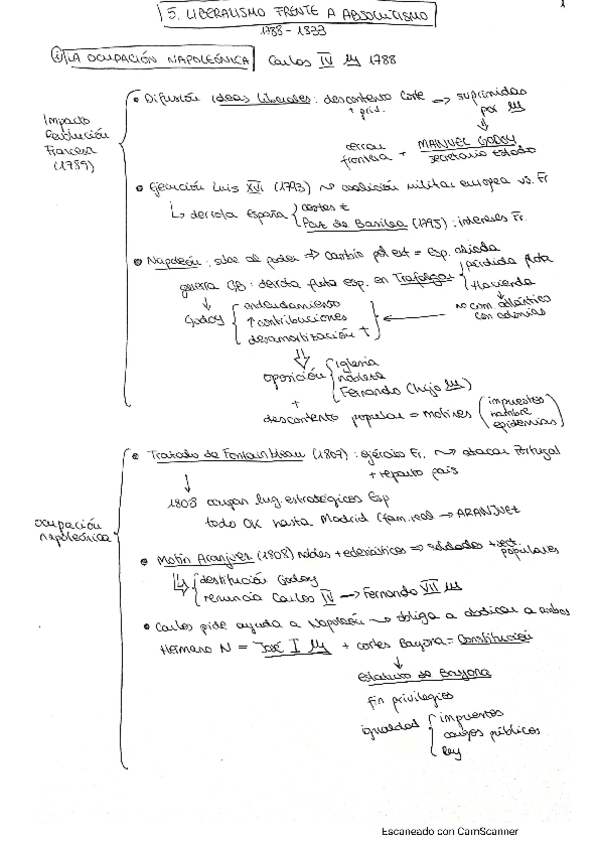 1
5. LIBERALISMO FRENTE A ABSOLUTISMO
1788 - 1833
① LA OCUPACIÓN NAPOLEÓNICA Carlos IV 1788
Impacto Revolución Francesa (1789)
• Difusión ideas liberales: descontento Corte → suprimidas por
cerrar frontera + MANUEL GODOY
secretario Estado
• Ejecución Luis XVI (1793) coalición militar europea vs. Fr
↳ derrota España { cortes t
Paz de Basilea (1795): intereses Fr.
• Napoleón: sube al poder ⇒ cambio pol ext = Esp. aliada
guerra GB: derrota flota esp. en Trafalgar { pérdida flota
Hacienda
↓
no com. atlántico con colonias
Godoy { endeudamiento
↑ contribuciones
desamortización t
oposición { Iglesia
nobleza
Fernando (hijo
+
descontento popular = motines (impuestos
hambre
epidemias)
ocupación napoleónica
• Tratado de Fontainbleau (1807): ejército Fr. atacar Portugal
+ reparto país
↓
1808 ocupan lug. estratégicos Esp
todo OK hasta Madrid (fam. real → ARANJUEZ
• Motín Aranjuez (1808) nobles + eclesiásticos ⇒ soldados + populares
↳ { destitución Godoy
renuncia Carlos IV → Fernando VII
• Carlos pide ayuda a Napoleón obliga a abdicar a ambos
Hermano N = José I + cortes Bayona = Constitución
↓
Estatuto de Bayona
fin privilegios
igualdad { impuestos
cargos públicos
ley
Escaneado con CamScanner